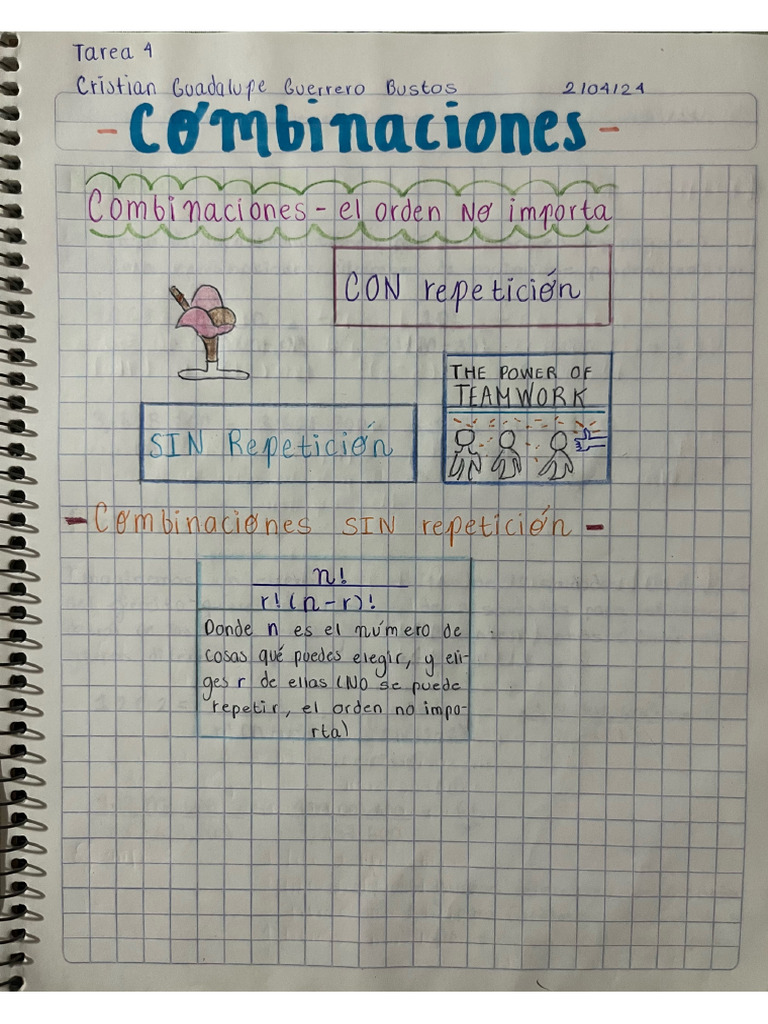 Tarea 4
Cristian Guadalupe Guerrero Bustos 2/04/24
- Combinaciones -
Combinaciones - el orden NO importa
CON repetición
THE POWER OF
TEAMWORK
SIN Repetición
- Combinaciones SIN repetición -
n!
r!(n-r)!
Donde n es el número de
cosas qué puedes elegir, y eli-
ges r de ellas (NO se puede
repetir, el orden no impo-
rta)